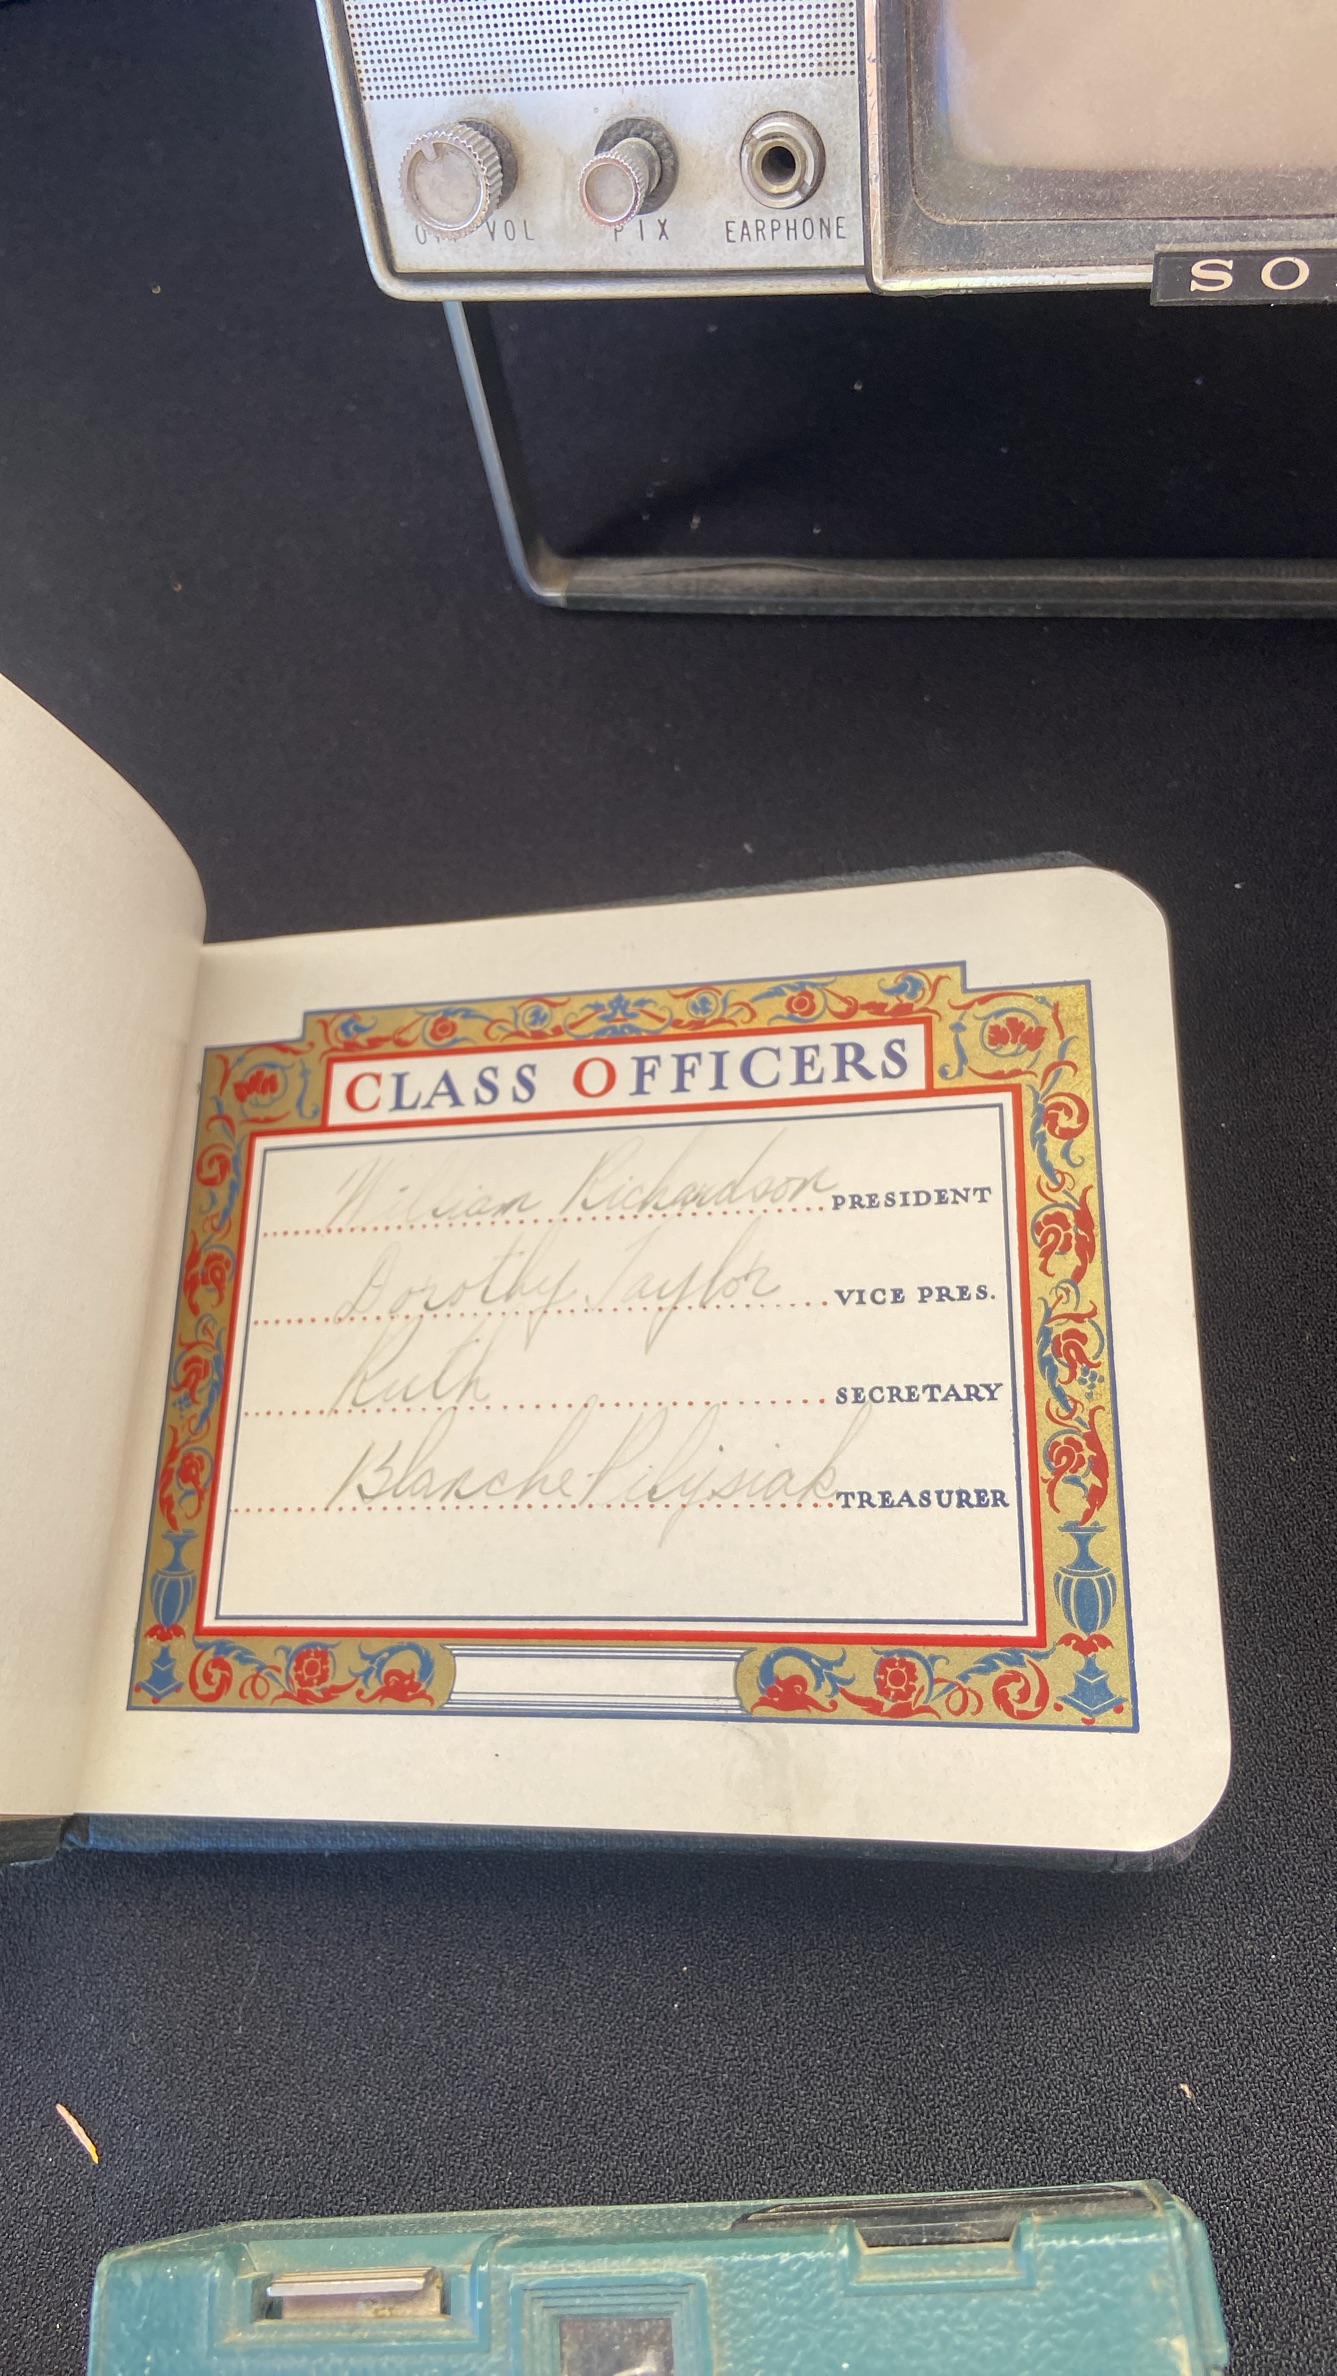 VOL PIX EARPHONE
SO
CLASS OFFICERS
William Richardson PRESIDENT
Dorothy Taylor VICE PRES.
Ruth SECRETARY
Blanche TREASURER